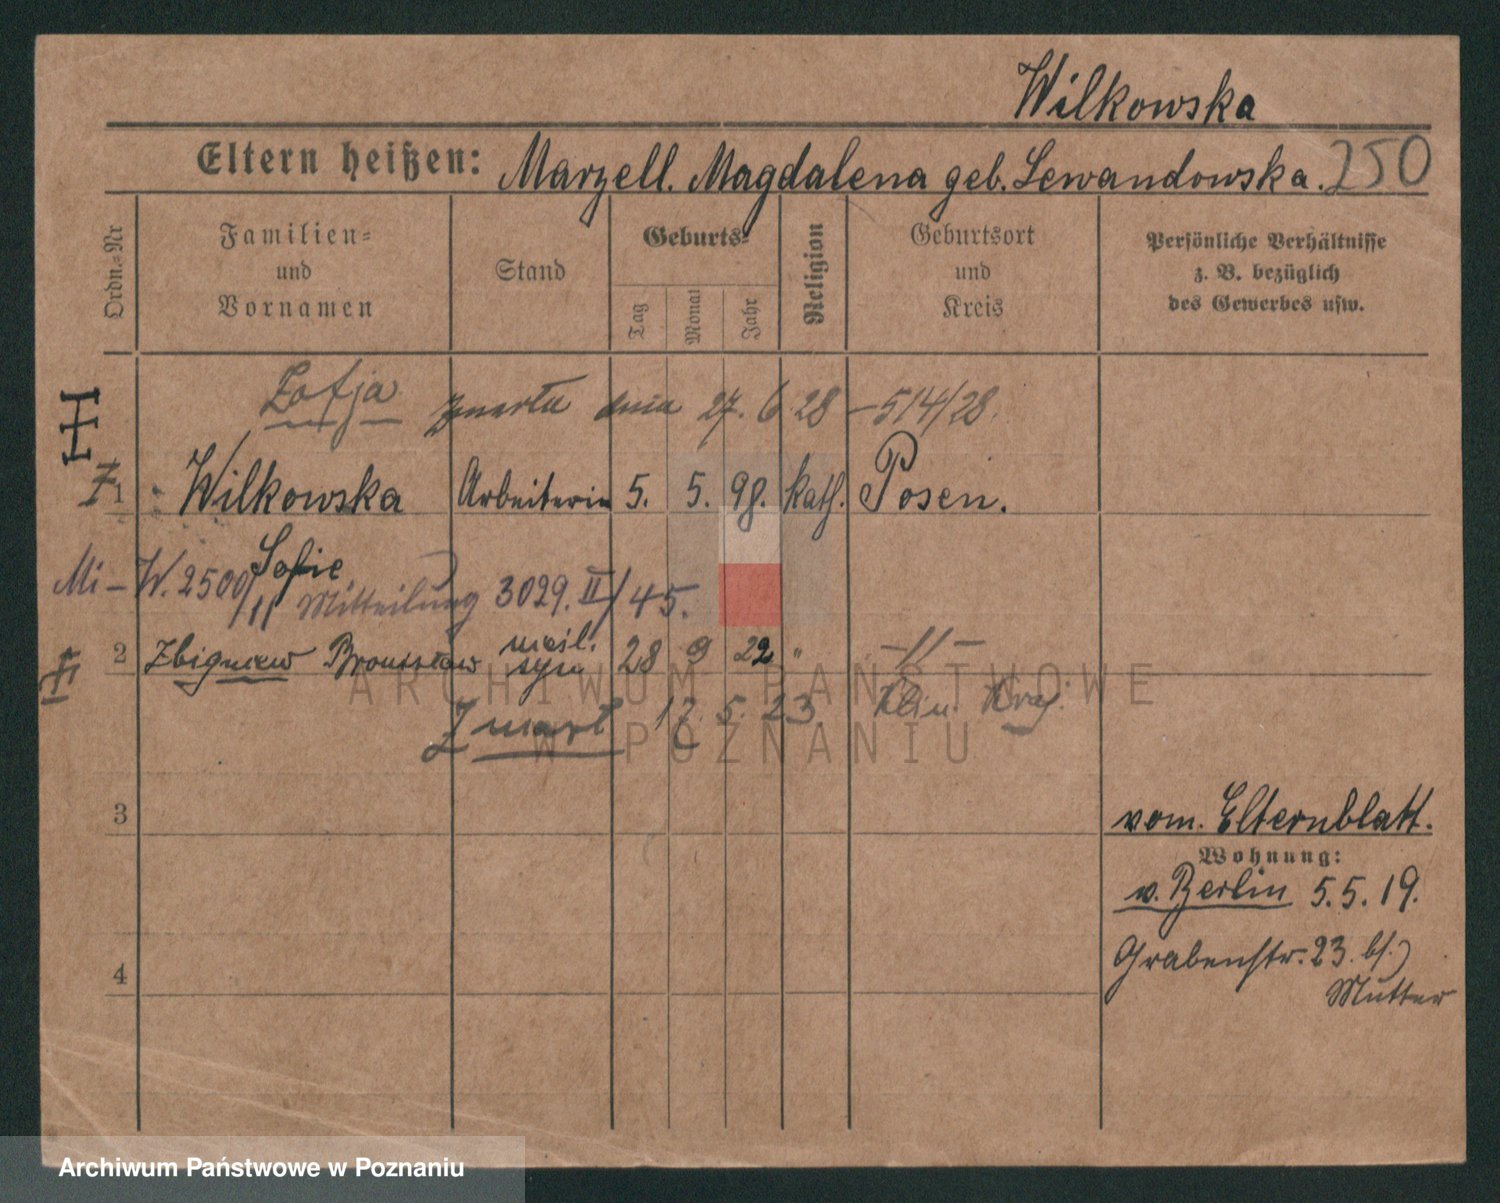 Wilkowska
Eltern heißen: Marzell. Magdalena geb. Lewandowska. 250
Ordn.-Nr
Familien-
und
Vornamen
Stand
Geburts-
Tag
Monat
Jahr
Religion
Geburtsort
und
Kreis
Persönliche Verhältnisse
z. B. bezüglich
des Gewerbes usw.
Zofja zmarła dnia 27. 6 28 – 514/28.
1 Wilkowska Arbeiterin 5. 5. 98. kath. Posen.
Sofie
Mi – W. 2500/11 Mitteilung 3029. II/45.
nieśl.
2 Zbigniew Bronisław syn 28 9 22 " – 11 –
Zmarł 17. 5. 23.
3
vom. Elternblatt.
Wohnung:
v. Berlin 5. 5. 19.
4
Grabenstr. 23. b/.)
Mutter
ARCHIWUM PAŃSTWOWE
W POZNANIU
Archiwum Państwowe w Poznaniu